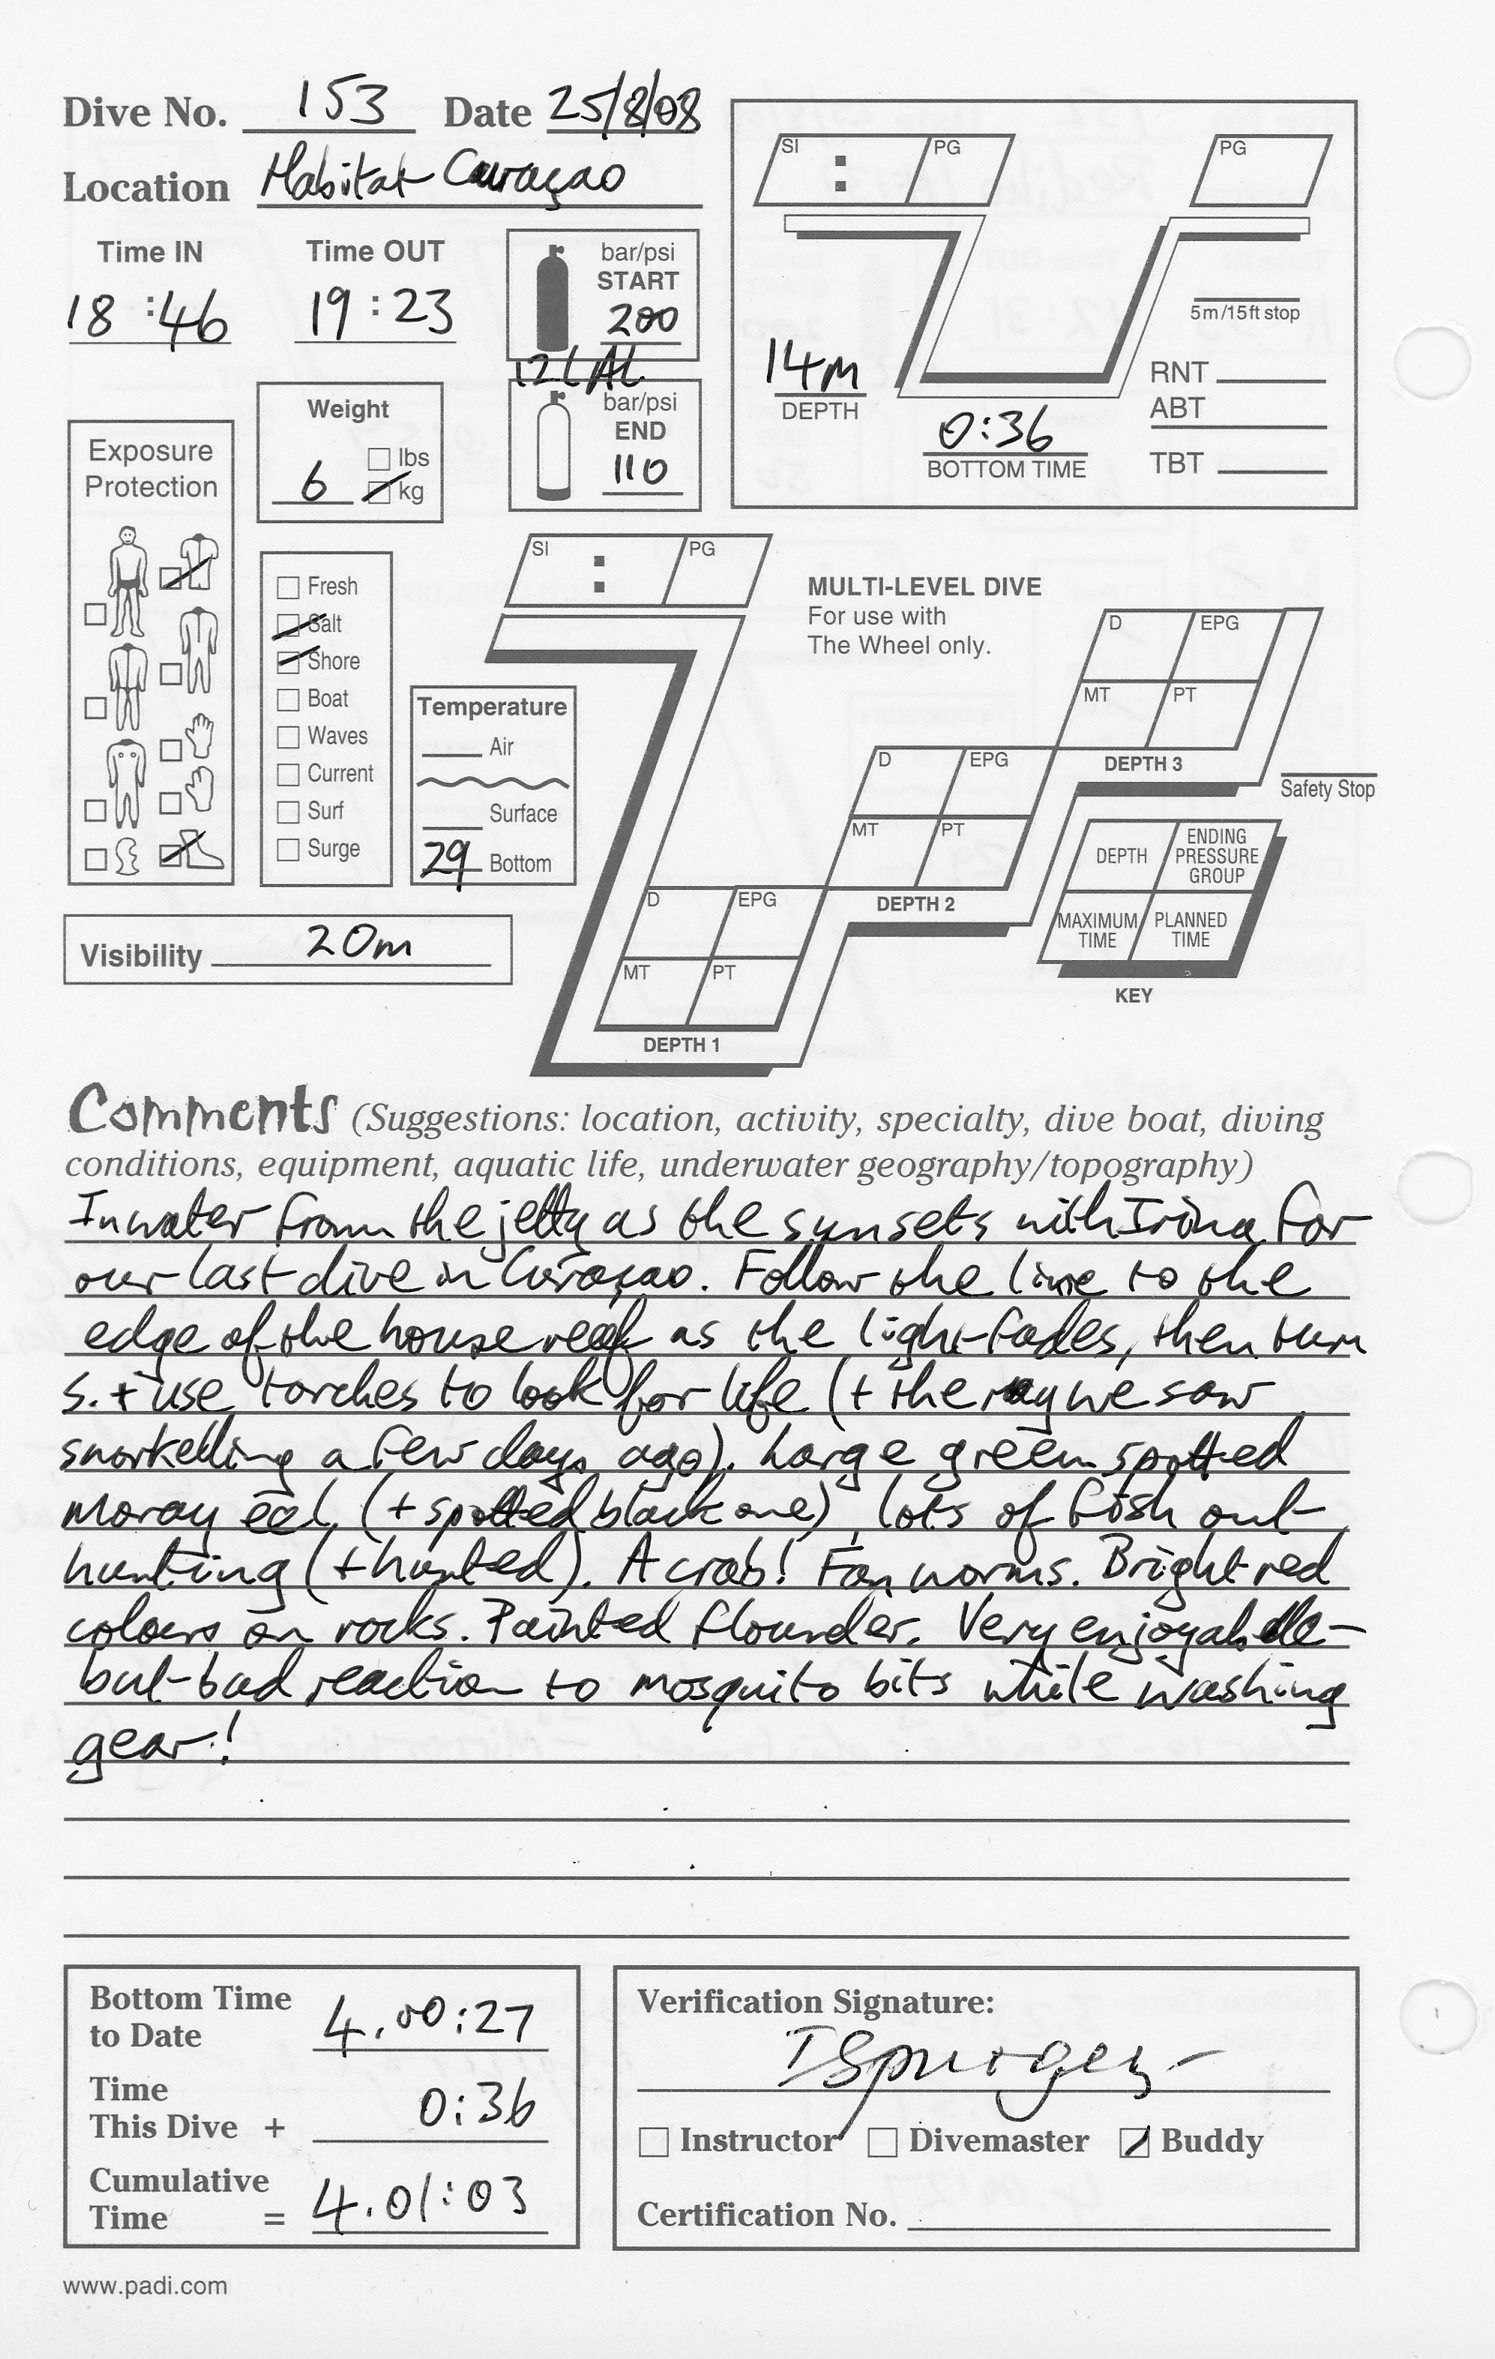 Dive No. 153 Date 25/8/08
Location Habitat Curaçao
SI : PG
PG
Time IN
18:46
Time OUT
19:23
bar/psi
START
200
12L AL
bar/psi
END
110
14m
DEPTH
0:36
BOTTOM TIME
5m/15ft stop
RNT
ABT
TBT
Weight
6
lbs
kg
Exposure
Protection
Fresh
Salt
Shore
Boat
Waves
Current
Surf
Surge
Temperature
Air
Surface
29 Bottom
Visibility 20m
SI : PG
MULTI-LEVEL DIVE
For use with
The Wheel only.
D EPG
MT PT
DEPTH 3
D EPG
MT PT
DEPTH 2
D EPG
MT PT
DEPTH 1
Safety Stop
DEPTH
ENDING
PRESSURE
GROUP
MAXIMUM
TIME
PLANNED
TIME
KEY
Comments (Suggestions: location, activity, specialty, dive boat, diving
conditions, equipment, aquatic life, underwater geography/topography)
In water from the jetty as the sun sets with Irina for
our last dive in Curaçao. Follow the line to the
edge of the house reef as the light fades, then turn
S. + use torches to look for life (+ the ray we saw
snorkelling a few days ago). Large green spotted
moray eel (+ spotted black one), lots of fish out
hunting (+ hunted). A crab! Fan worms. Bright red
colours on rocks. Painted flounder. Very enjoyable –
but bad reaction to mosquito bits while washing
gear!
Bottom Time
to Date 4.00:27
Time
This Dive + 0:36
Cumulative
Time = 4.01:03
Verification Signature:
ISpurgen
Instructor Divemaster Buddy
Certification No.
www.padi.com